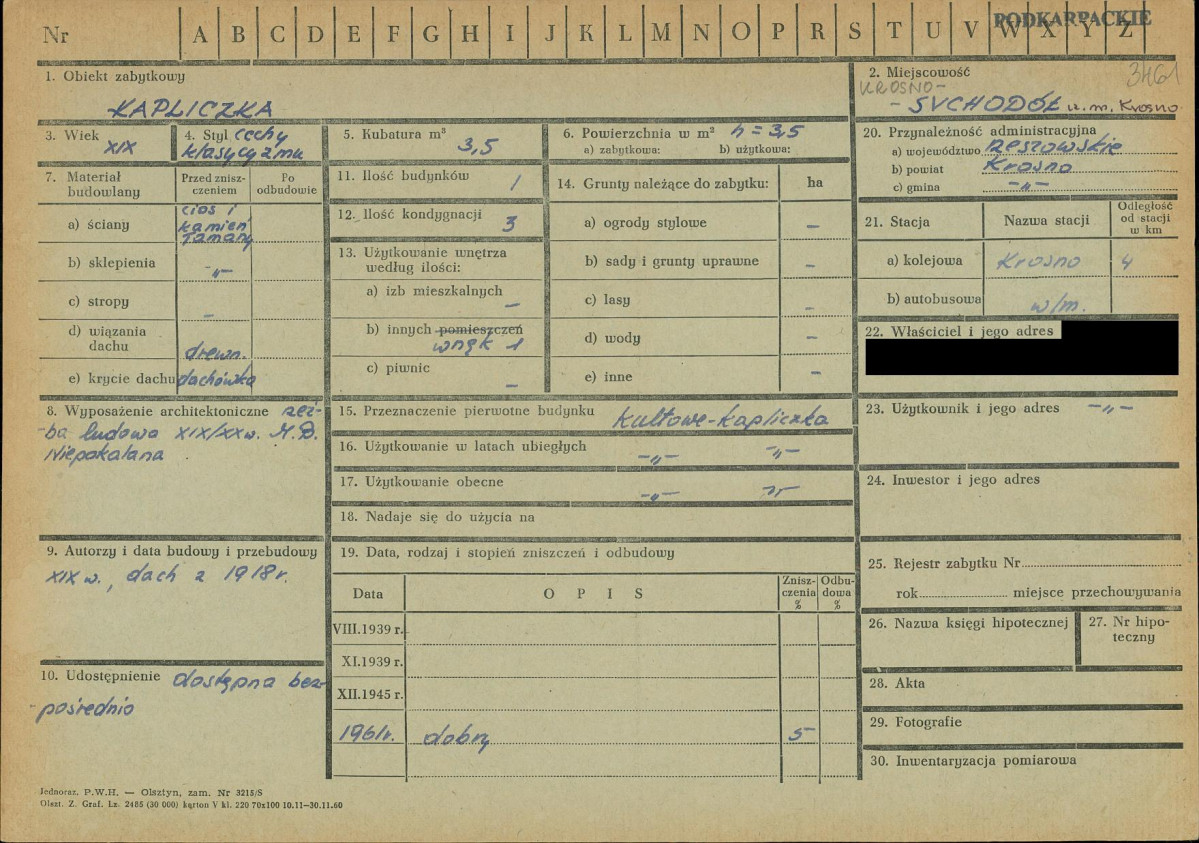 Nr A B C D E F G H I J K L M N O P R S T U V W X Y Z
PODKARPACKIE
1. Obiekt zabytkowy
KAPLICZKA
2. Miejscowość
3461
KROSNO -
- SUCHODÓŁ n. m. Krosno
3. Wiek
XIX
4. Styl cechy
klasycyzmu
5. Kubatura m³
3,5
6. Powierzchnia w m² h = 3,5
a) zabytkowa: b) użytkowa:
20. Przynależność administracyjna
a) województwo Rzeszowskie
b) powiat Krosno
c) gmina -„-
7. Materiał budowlany
Przed zniszczeniem
Po odbudowie
a) ściany cios i
kamień
łamany
b) sklepienia -„-
c) stropy -
d) wiązania
dachu drewn.
e) krycie dachu dachówka
11. Ilość budynków 1
12. Ilość kondygnacji 3
13. Użytkowanie wnętrza
według ilości:
a) izb mieszkalnych -
b) innych pomieszczeń
wnęk 1
c) piwnic -
14. Grunty należące do zabytku: ha
a) ogrody stylowe -
b) sady i grunty uprawne -
c) lasy -
d) wody -
e) inne -
21. Stacja Nazwa stacji Odległość
od stacji
w km
a) kolejowa Krosno 4
b) autobusowa w/m.
22. Właściciel i jego adres
8. Wyposażenie architektoniczne rzeź-
-ba ludowa XIX/XX w. M.B.
Niepokalana
15. Przeznaczenie pierwotne budynku kultowe-kapliczka
16. Użytkowanie w latach ubiegłych -„- -„-
17. Użytkowanie obecne -„- -„-
18. Nadaje się do użycia na
23. Użytkownik i jego adres -„-
24. Inwestor i jego adres
9. Autorzy i data budowy i przebudowy
XIX w., dach z 1918 r.
19. Data, rodzaj i stopień zniszczeń i odbudowy
Data OPIS Znisz-
czenia
% Odbu-
dowa
%
VIII.1939 r.
XI.1939 r.
XII.1945 r.
1961r. dobry 5
25. Rejestr zabytku Nr
rok miejsce przechowywania
26. Nazwa księgi hipotecznej
27. Nr hipo-
teczny
10. Udostępnienie dostępna bez-
-pośrednio
28. Akta
29. Fotografie
30. Inwentaryzacja pomiarowa
Jednoraz. P.W.H. — Olsztyn, zam. Nr 3215/S
Olszt. Z. Graf. Lz. 2485 (30 000) karton V kl. 220 70x100 10.11—30.11.60